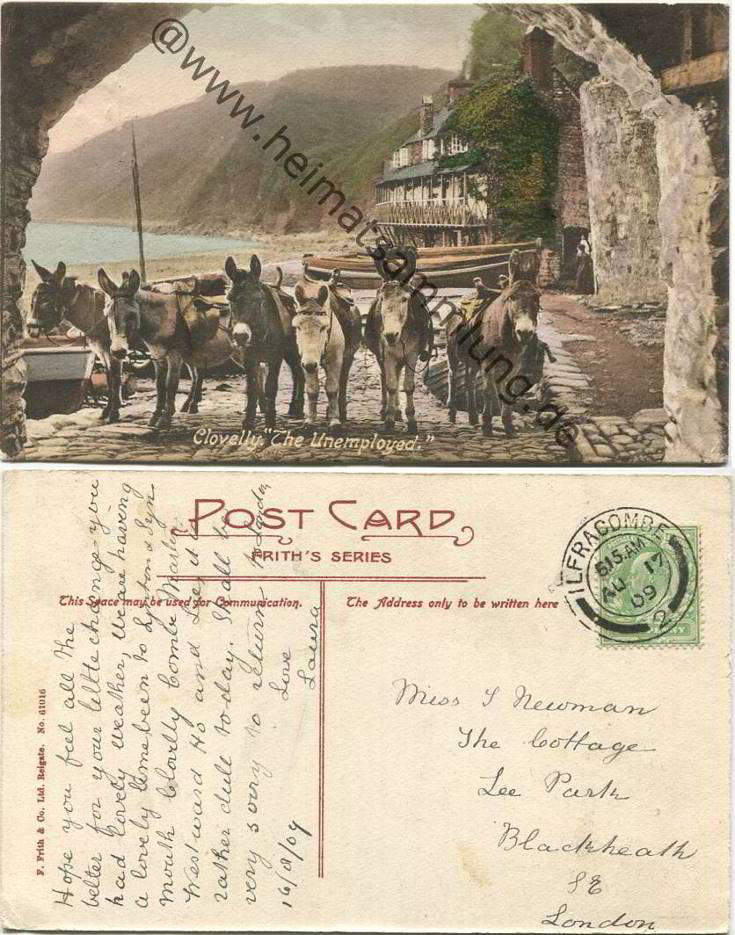 @www.heimatsammlung.de
Clovelly. "The Unemployed."
POST CARD
FRITH'S SERIES
This Space may be used for Communication.
The Address only to be written here
ILFRACOMBE
615.AM
AU 17
09
2
F. Frith & Co. Ltd. Reigate. No. 61016
Hope you feel all the
better for your little change. you
had lovely weather, we are having
a lovely time been to Lynton & Lyn
mouth Clovelly Combe Martin
Westward Ho and Lee, it is
rather dull today. Shall be
very sorry to return to London
Love
Laura
16/8/09
Miss S Newman
The Cottage
Lee Park
Blackheath
SE
London